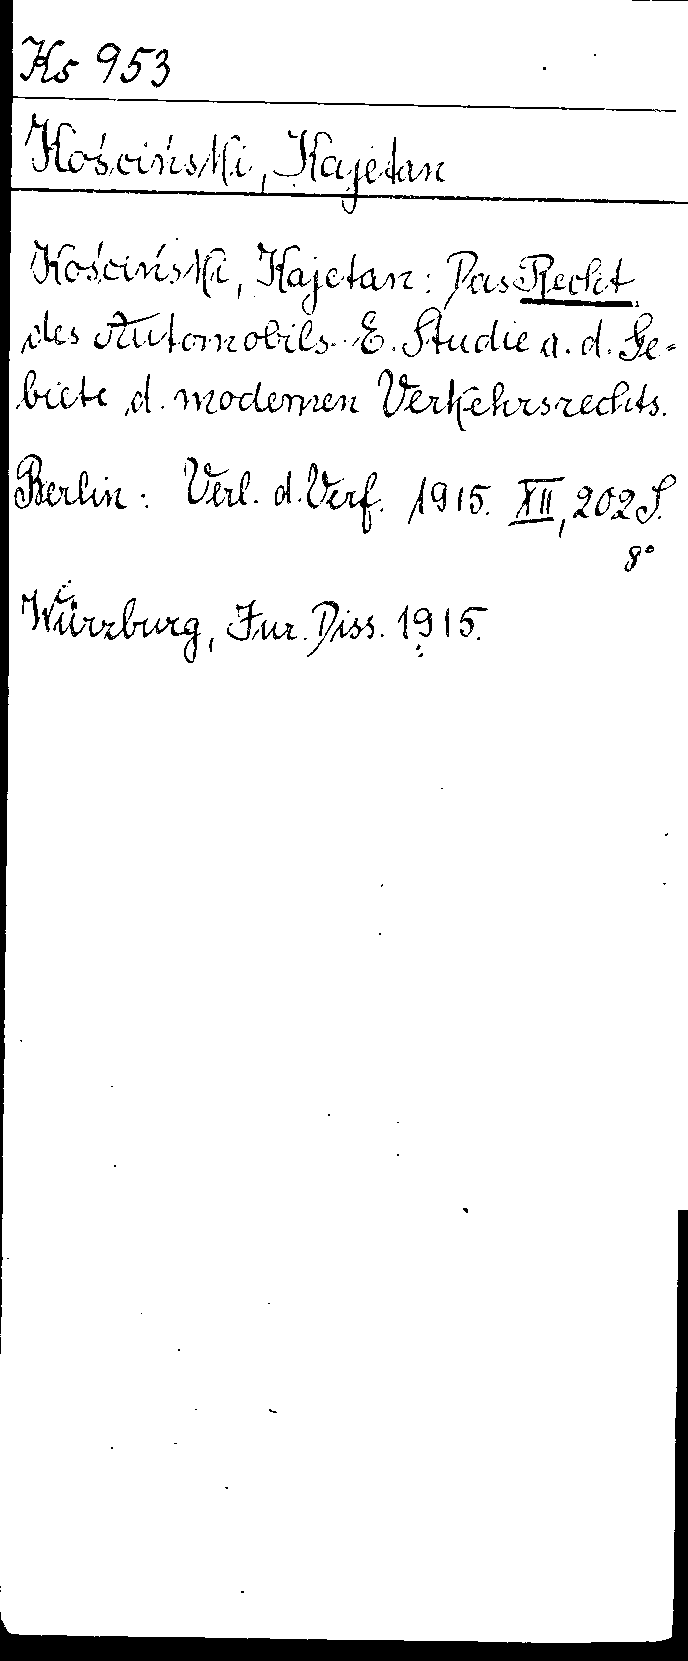 Ks 953
Kościński, Kajetan
Kościński, Kajetan: Das Recht
des Automobils. E. Studie a. d. Ge-
biete d. modernen Verkehrsrechts.
Berlin: Verl. d. Verf. 1915. XII, 202 S.
8°
Würzburg, Jur. Diss. 1915.